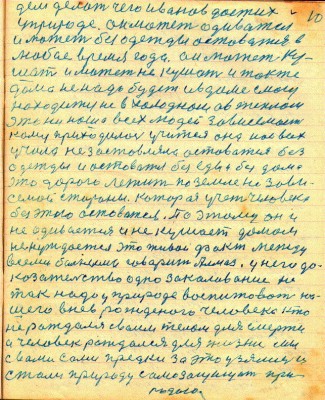 10
дем делат чего иванов достиг
у природе. он может одиватся
и может без одежды оставатся в
любое время года. он может ку-
шат и может не кушат и также
дома не надо будет и в доме смогу
находится не в холодном а в теплом
это на наша всех людей зависемост
кому приходилос учится она нас всех
учила не заставляла оставатся без
одежды и оставатся без еды и без дома
это дорога лежит по земле не зави-
семой стараны. которая учит человека
без этого оставатся. Поэтому он и
не одивается и не кушает домом
не нуждается это живой факт между
всеми болными говарит Алмаз. у него до-
козателство одно закаливание не
так надо у природе воспитоват на-
шего вновь рожденого человека кто
не рождался своим телом для смерти
а человек рождался для жизни мы
с вами сами предки за это узялись и
стали природу самозащищат при-
родою